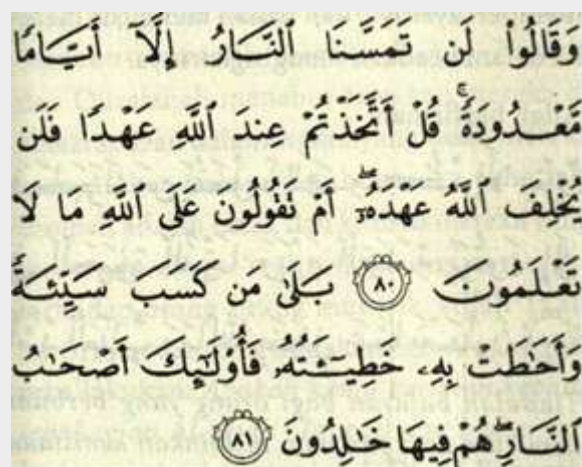 وَقَالُوا۟ لَن تَمَسَّنَا ٱلنَّارُ إِلَّآ أَيَّامًا
مَّعْدُودَةً ۚ قُلْ أَتَّخَذْتُمْ عِندَ ٱللَّهِ عَهْدًا فَلَن
يُخْلِفَ ٱللَّهُ عَهْدَهُۥٓ ۖ أَمْ نَقُولُونَ عَلَى ٱللَّهِ مَا لَا
تَعْلَمُونَ ٨٠ بَلَىٰ مَن كَسَبَ سَيِّئَةً
وَأَحَٰطَتْ بِهِۦ خَطِيٓـَٔتُهُۥ فَأُو۟لَٰٓئِكَ أَصْحَٰبُ
ٱلنَّارِ ۖ هُمْ فِيهَا خَٰلِدُونَ ٨١